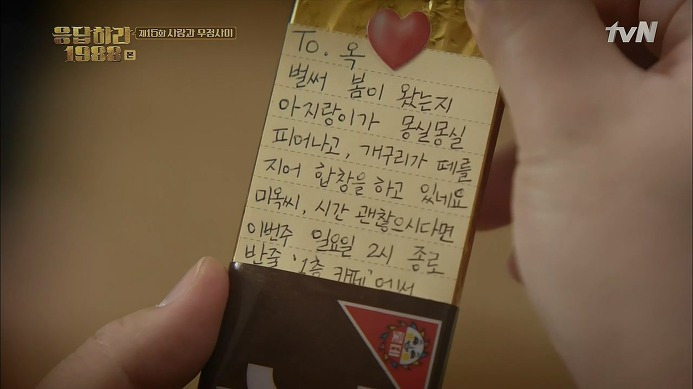 응답하라
1988 본
제15화 사랑과 우정사이
tvN
To. 옥
벌써 봄이 왔는지
아지랑이가 몽실몽실
피어나고, 개구리가 떼를
지어 합창을 하고 있네요
미옥씨, 시간 괜찮으시다면
이번주 일요일 2시 종로
반줄 '1층 카페'에서